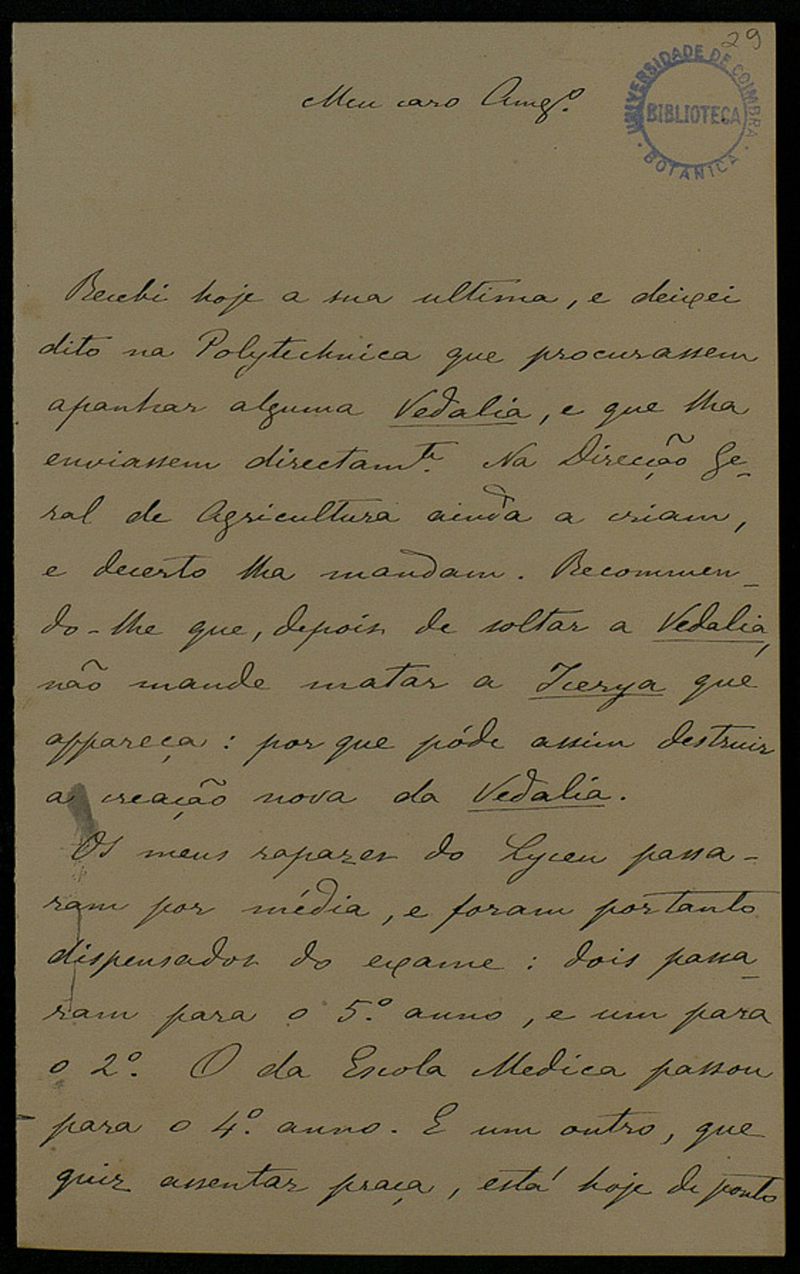 29
UNIVERSIDADE DE COIMBRA
BIBLIOTECA
BOTANICA
Meu caro Amgº.
Recebi hoje a sua ultima, e deixei
dito na Polytechnica que procurassem
apanhar alguma Vedalia, e que lha
enviassem directamte. Na Direcção Ge-
ral de Agricultura ainda a criam,
e decerto lha mandam. Recommen-
do-lhe que, depois de soltar a Vedalia,
não mande matar a Icerya que
appareça: por que póde assim destruir
a creação nova da Vedalia.
Os meus rapazes do Lyceu passa-
ram por média, e foram portanto
dispensados do exame: dois passa-
ram para o 5.º anno, e um para
o 2º. O da Escola Medica passou
para o 4.º anno. E um outro, que
quiz assentar praça, está hoje de ponto